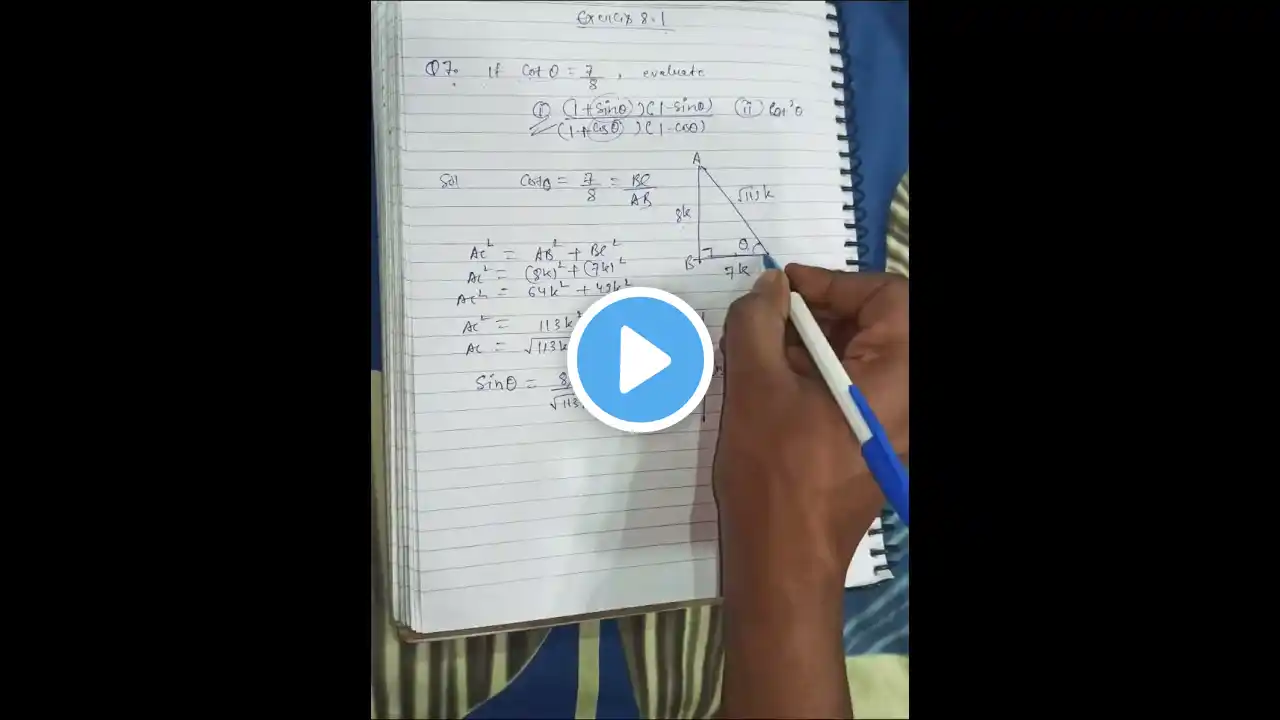 Exercise 8.1
Q7. If Cot θ = 7/8, evaluate
(i) (1+Sinθ)(1-Sinθ) / (1+Cosθ)(1-Cosθ) (ii) Cot²θ
Sol Cotθ = 7/8 = BC/AB
A
8k √113k
θ
B
7k
AC² = AB² + BC²
AC² = (8k)² + (7k)²
AC² = 64k² + 49k²
AC² = 113k²
AC = √113k
Sinθ = 8/√113